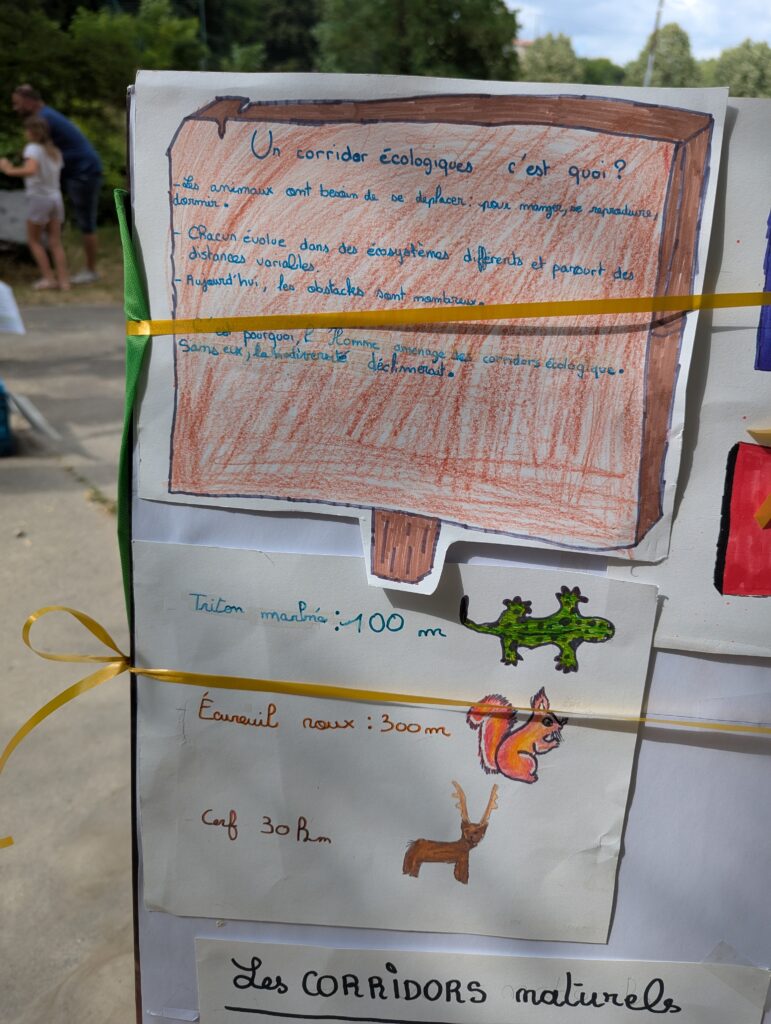 Un corridor écologiques c'est quoi ?
- Les animaux ont besoin de se deplacer : pour manger, se reproduire,
dormir.
- Chacun évolue dans des écosystèmes différents et parcourt des
distances variables.
- Aujourd'hui, les obstacles sont nombreux.
pourquoi, l'Homme aménage des corridors écologique.
Sans eux, la biodiversité déclinerait.
Triton marbré : 100 m
Écureuil roux : 300 m
Cerf 30 km
Les CORRIDORS naturels